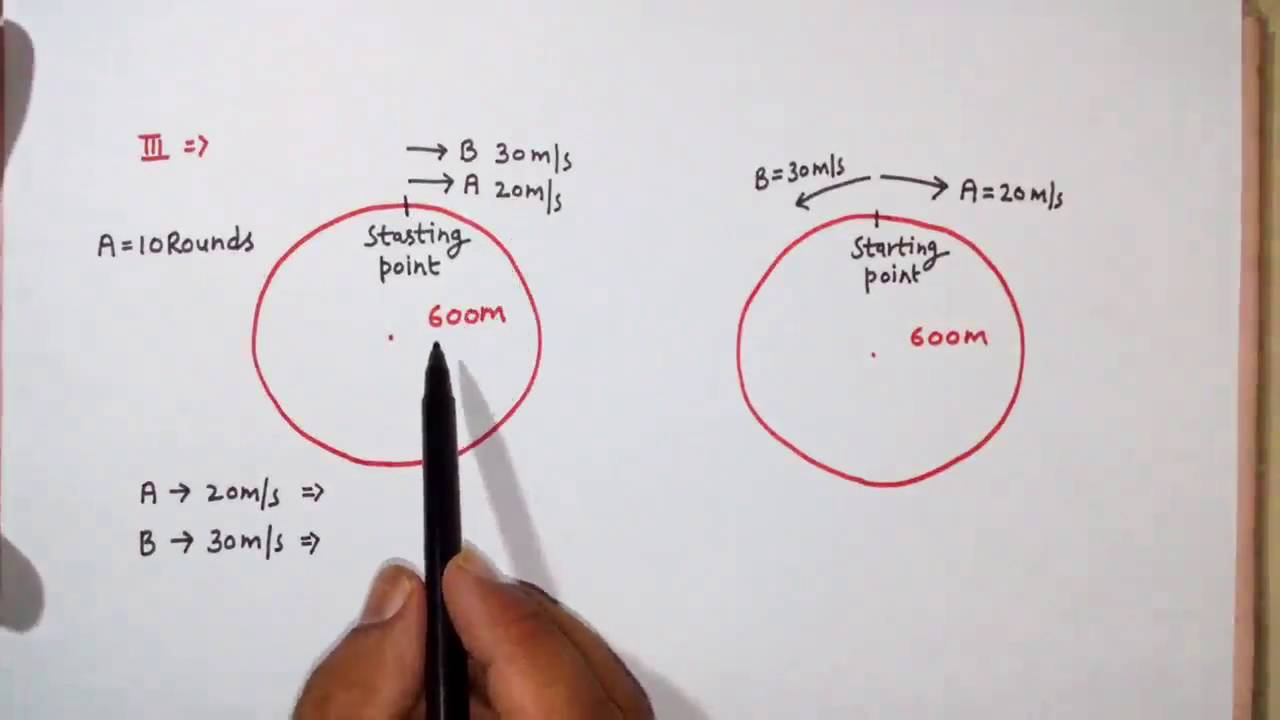 III =>
B 30m/s
A 20m/s
A = 10 Rounds
Stasting
point
600m
A → 20m/s =>
B → 30m/s =>
B = 30m/s
A = 20m/s
Starting
point
600m